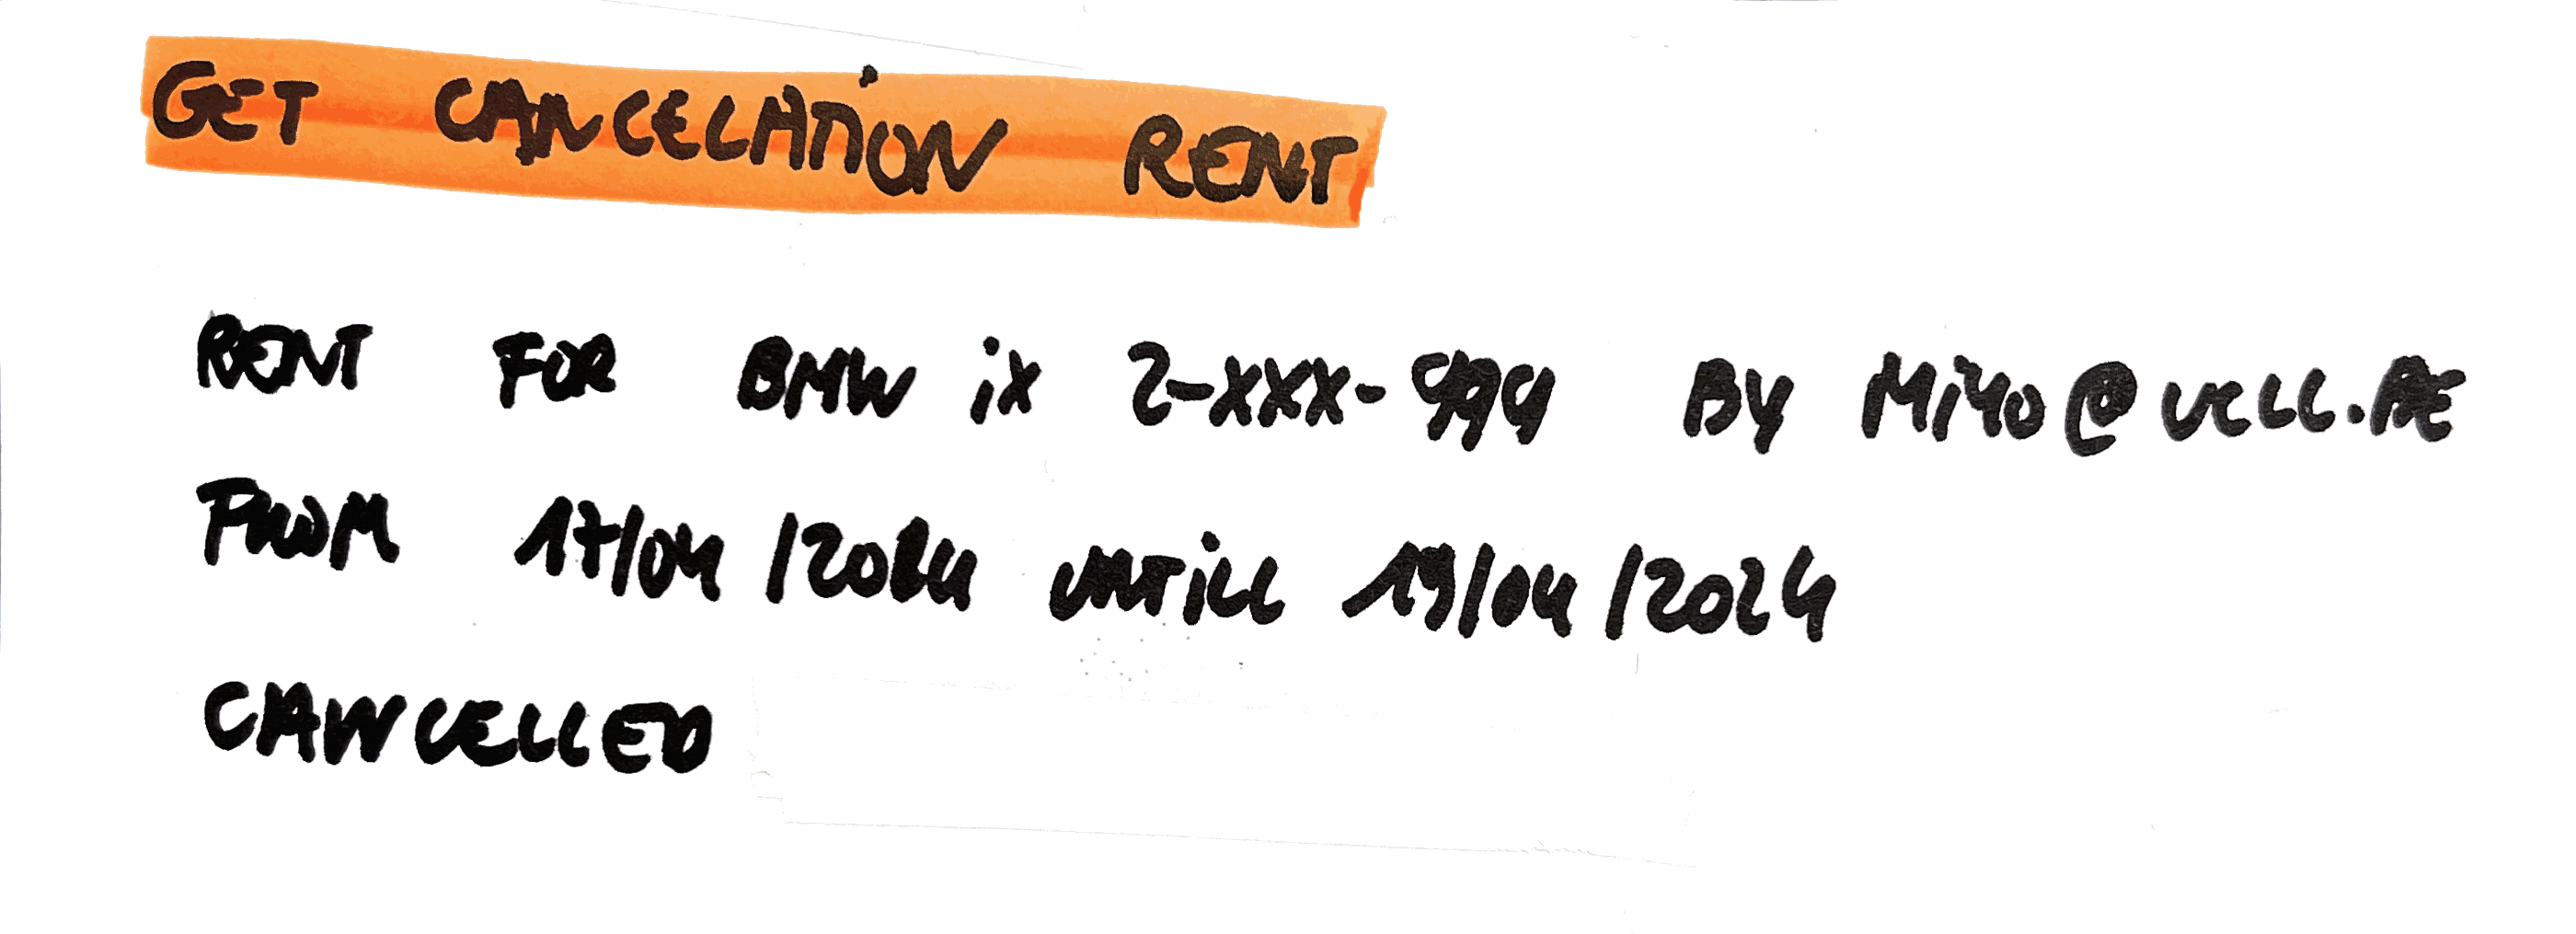 GET CANCELATION RENT
RENT FOR BMW iX 2-XXX-999 BY MiYo@UCLL.BE
FROM 17/04/2024 UNTILL 19/04/2024
CANCELLED